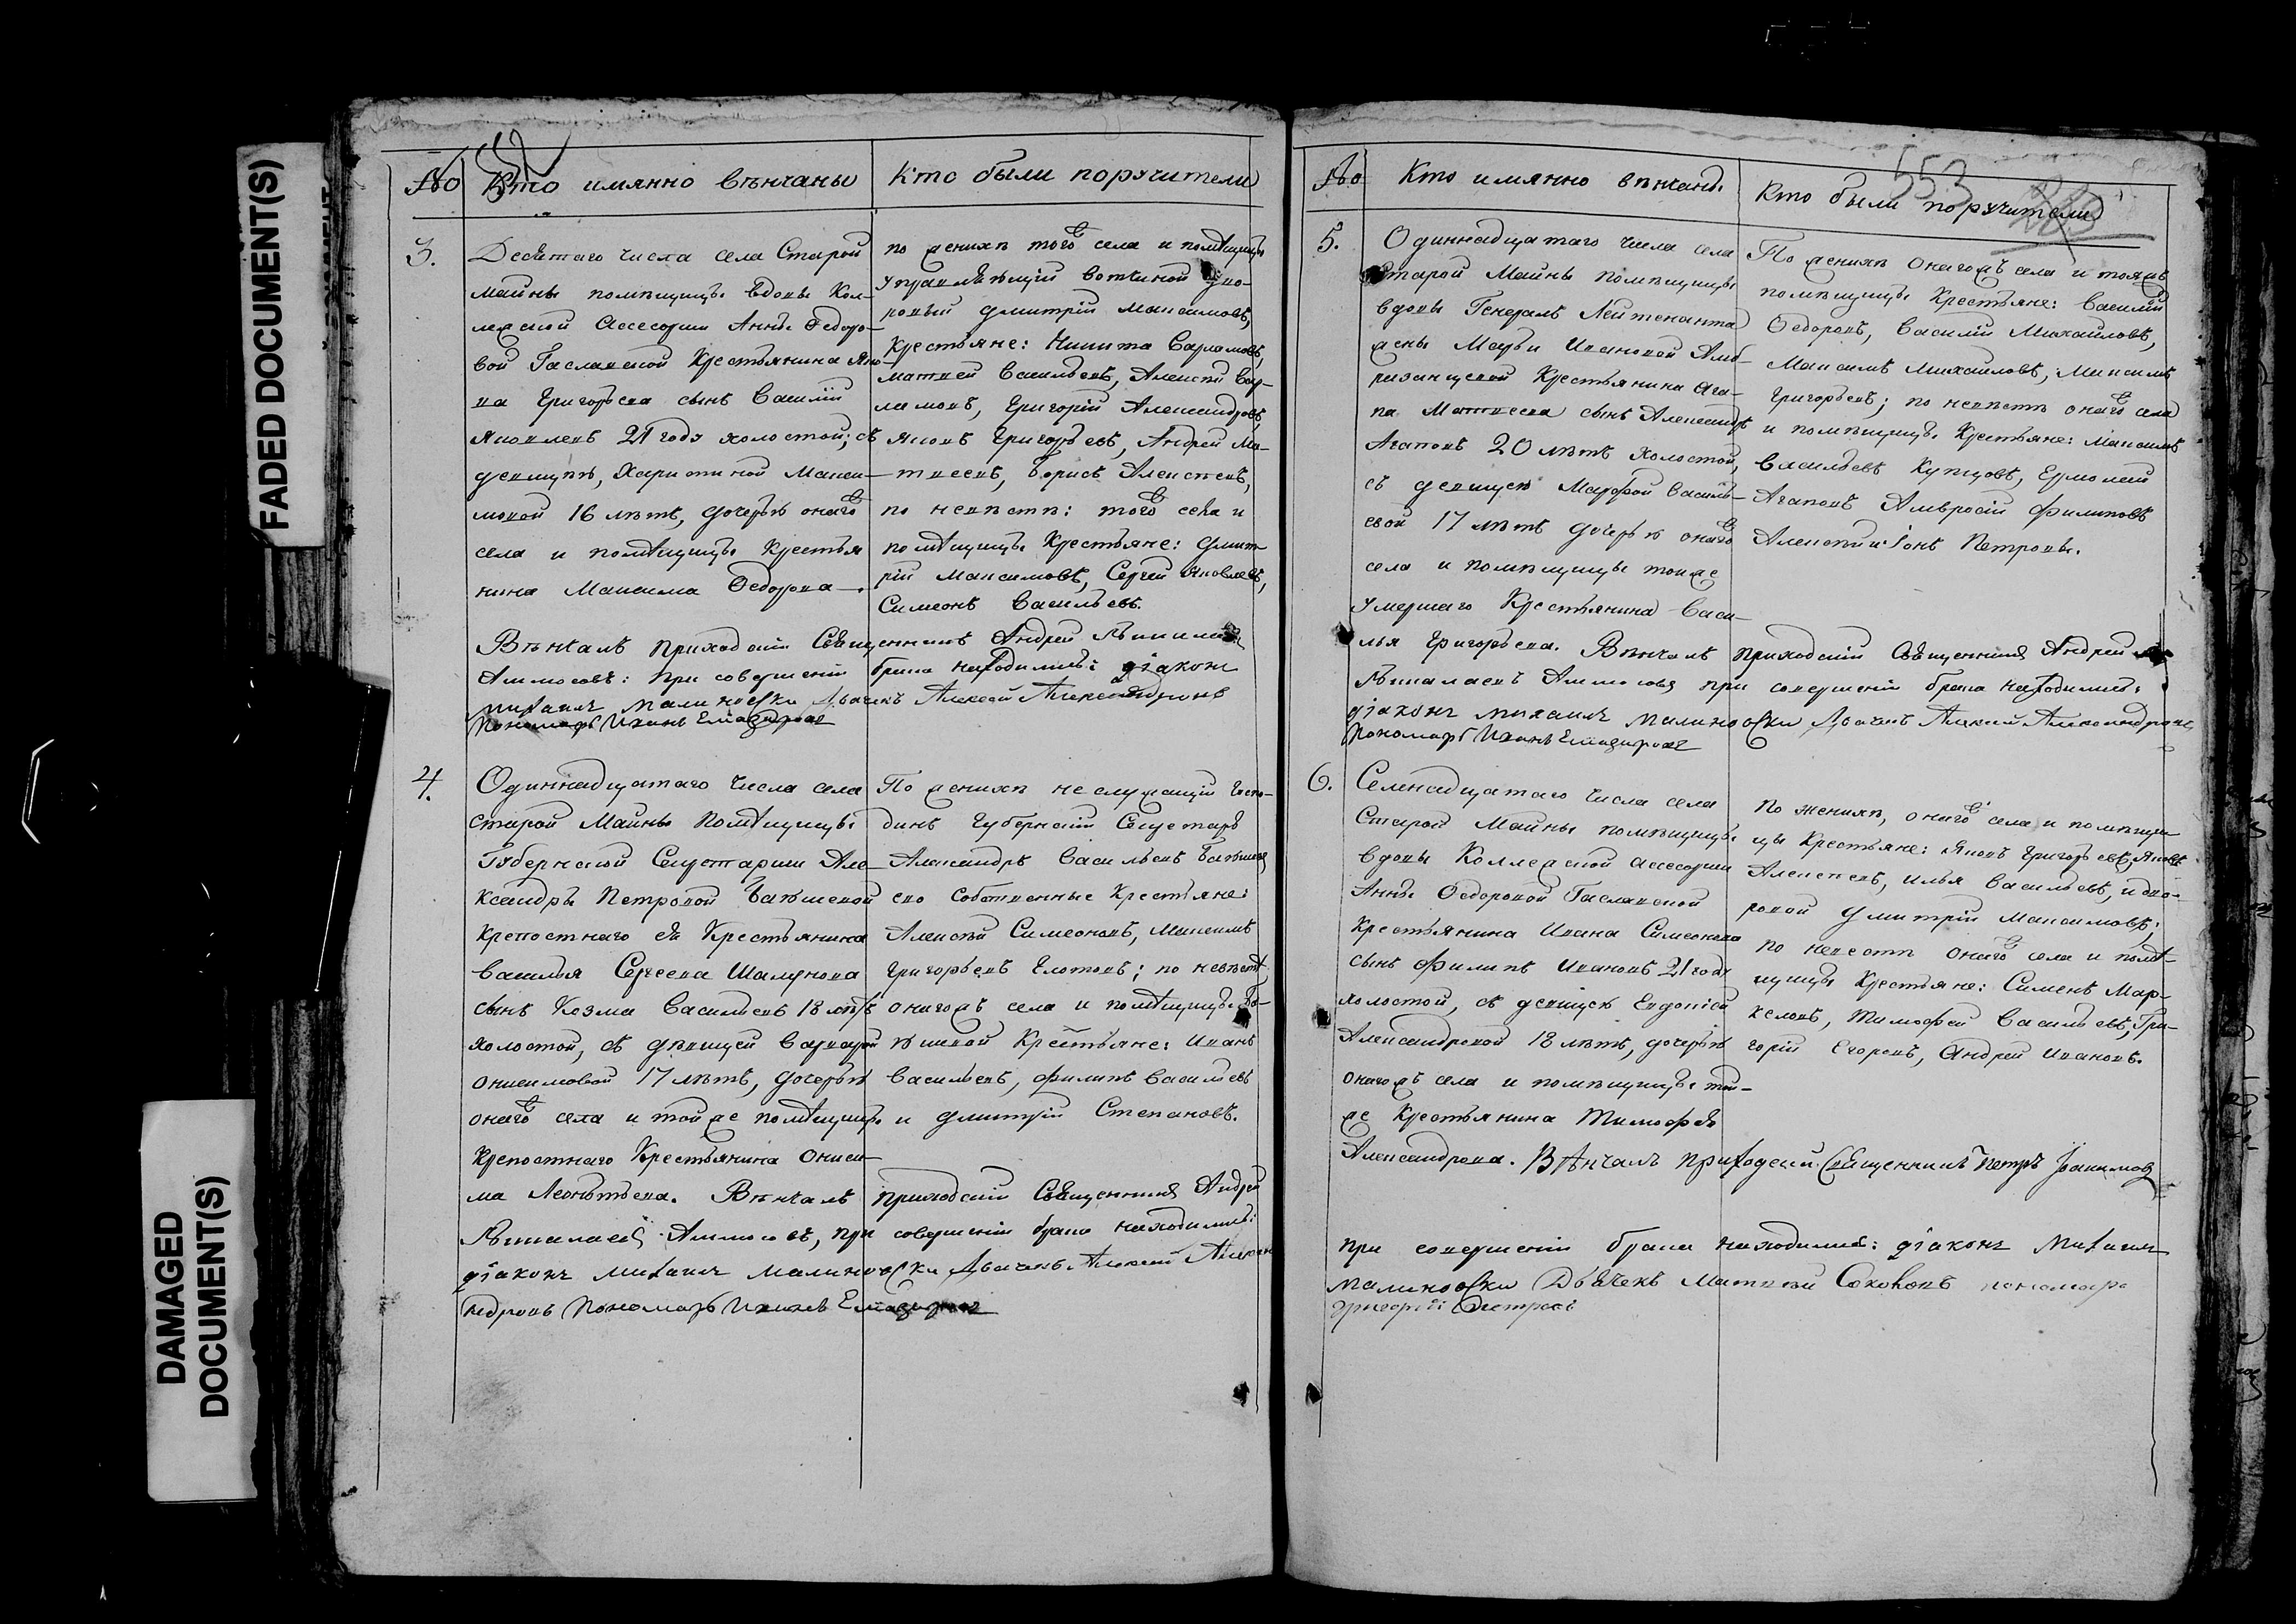 FADED DOCUMENT(S)
DAMAGED
DOCUMENT(S)
№ Кто имянно вѣнчаны
Кто были поручители
3.
Десятаго числа села Старой
Майны помѣщицы вдовы Кол-
лежской Ассесорши Анны Ѳедоро-
вой Гаславской Крестьянина Яко-
ва Григорьева сынъ Василій
Яковлевъ 21 годѫ холостой; съ
девицѣю, Харитиной Макси-
мовой 16 лѣтъ, дочерью онаго
села и помѣщицы Крестья
нина Максима Ѳедорова
по женихѣ того села и помѣщицы
управляющій вотчиной дво-
ровый Дмитрій Максимовъ,
Крестьяне: Никита Варламовъ,
Матвей Васильевъ, Алексѣй Вар-
ламовъ, Григорій Александровъ,
Яковъ Григорьевъ, Андрей Ма-
твеевъ, Борисъ Алексеевъ,
по невѣстѣ: того села и
помѣщицы Крестьяне: Дмит
рій Максимовъ, Сергей Яковлевъ,
Симеонъ Васильевъ.
Вѣнчалъ приходскій Священникъ Андрей
при совершеніи брака находились: діаконъ
михаилъ малиновски Дьячекъ Алексѣй Александровъ
Пономарь Иванъ
4.
Одиннадцатаго числа села
Старой Майны Помѣщицы
Губернской Секретарши Але-
ксандры Петровой
крепостнаго ея Крестьянина
Василья Сергеева
сынъ Козма Васильевъ 18 лѣтъ
холостой, съ дѣвицей Варварой
Онисимовой 17 лѣтъ, дочерью
онаго села и той же помѣщицы
Крепостнаго Крестьянина Ониси-
ма Леонтьева. Вѣнчалъ приходскій Священникъ Андрей
при совершеніи брака находились:
діаконъ михаилъ малиновски Дьячекъ Алексѣй Алекса
ндровъ Пономарь Иванъ
По женихѣ не служащій Госпо-
динъ Губернскій Секретарь
Александръ Васильевъ
его собственные Крестьяне:
Алексѣй Симеоновъ, Максимъ
Григорьевъ по невѣстѣ
онагожъ села и помѣщицы
Крестьяне: Иванъ
Васильевъ, Филипъ Васильевъ
и Дмитрій Степановъ.
№ Кто имянно вѣнчаны
Кто были поручители
553
5.
Одиннадцатаго числа села
Старой Майны помѣщицы
вдовы Генералъ Лейтенанта
жены Марьи Ивановой
Крестьянина Ага-
па Матвеева сынъ Александръ
Агаповъ 20 лѣтъ холостой,
съ девицею Марфой Василь-
евой 17 лѣтъ дочерью онаго
села и помѣщицы тояже
умершаго Крестьянина Васи-
лья Григорьева. Вѣнчалъ приходскій Священникъ Андрей
при совершеніи брака находились:
діаконъ михаилъ малиновски Дьячекъ Алексѣй Александровъ
Пономарь Иванъ
По женихѣ онагожъ села и тояжъ
помѣщицы Крестьяне: Василій
Ѳедоровъ, Василій Михайловъ,
Максимъ Михайловъ, Максимъ
Григорьевъ; по невѣстѣ онаго села
и помѣщицы Крестьяне: Максимъ
Васильевъ Купцовъ, Ермолай
Агаповъ Амвросій Филиповъ
Алексѣй и Іонъ Петровы.
6.
Семнадцатаго числа села
Старой Майны помѣщицы
вдовы Коллежской Ассесорши
Анны Ѳедоровой Гаславской
Крестьянина Ивана Симеонова
сынъ Филипъ Ивановъ 21 годѫ
холостой, съ девицею Евдокіей
Александровой 18 лѣтъ, дочерью
онагожъ села и помѣщицы той-
же Крестьянина Тимофея
Александрова. Вѣнчалъ приходскій Священникъ Петръ
при совершеніи брака находились: діаконъ михаилъ
малиновски Дьячекъ Матвей Соколовъ пономарь
григорій
По женихѣ, онаго села и помѣщи
цы Крестьяне: Яковъ Григорьевъ, Яковъ
Алексеевъ, Илья Васильевъ, и дво-
ровой Дмитрій Максимовъ;
по невѣстѣ онаго села и помѣ-
щицы Крестьяне: Сименъ Мар-
келовъ, Тимофей Васильевъ, Гри-
горій Егоровъ, Андрей Ивановъ.